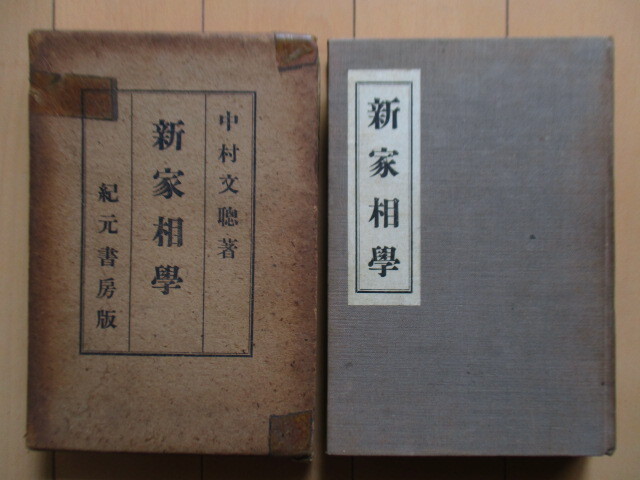 中村文聰著
新家相學
紀元書房版
新家相學